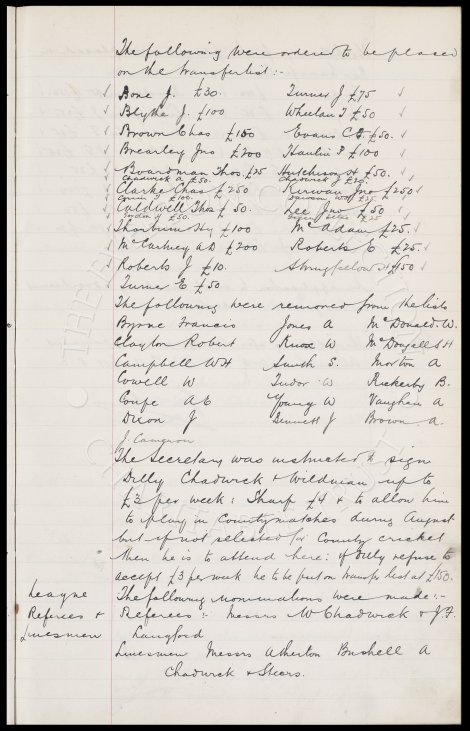 The following were ordered to be placed
on the transfer list :-
Bone J. £30. Turner J £75
Blythe J. £100 Wheelan T £50
Brown Chas £100 Evans C £50.
Brearley Jno £200 Hanlin P £100
Boardman Thos £25 Hutchison H £50.
Chadwick A £50. Chadwick J
Clarke Chas £250 Kirwan Jno £250
£100. Dawson £25
Caldwell Thos £50. Lee Jno £50
£50 £25
Thorburn Hy £100 McAdam £25.
McCartney A D £200 Roberts E £25.
Roberts J £10. Stringfellow H £150
Turner E £50
The following were removed from the lists
Byrne Francis Jones A McDonald. W.
Clayton Robert Knox W McDougall S H
Campbell W H Smith S. Morton A
Cowell W Tudor W Rickerby B.
Coupe A E Young W Vaughan A
Dixon J Bennett J Brown A.
J. Cameron
The Secretary was instructed to sign
Dilly Chadwick & Wildman up to
£3 per week : Sharp £4 & to allow him
to play in County matches during August
but if not selected for County cricket
then he is to attend here : if Dilly refuse to
accept £3 per week he to be put on transfer list at £150.
League The following nominations were made :-
Referees & Referees :- Messrs W Chadwick & J. F.
Linesmen Langford
Linesmen Messrs Atherton Bushell A
Chadwick & Steers.